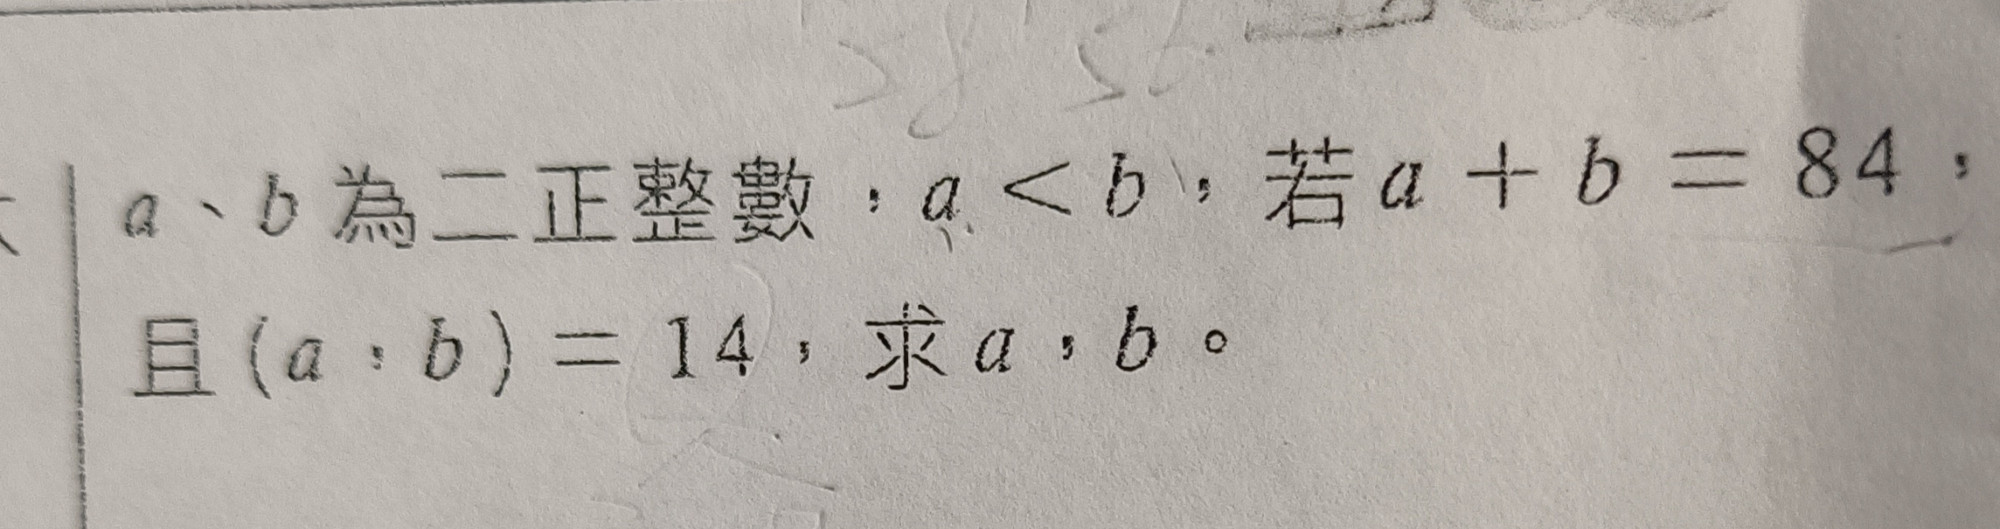 a、b為二正整數,a<b,若a+b=84,
且(a,b)=14,求a,b。